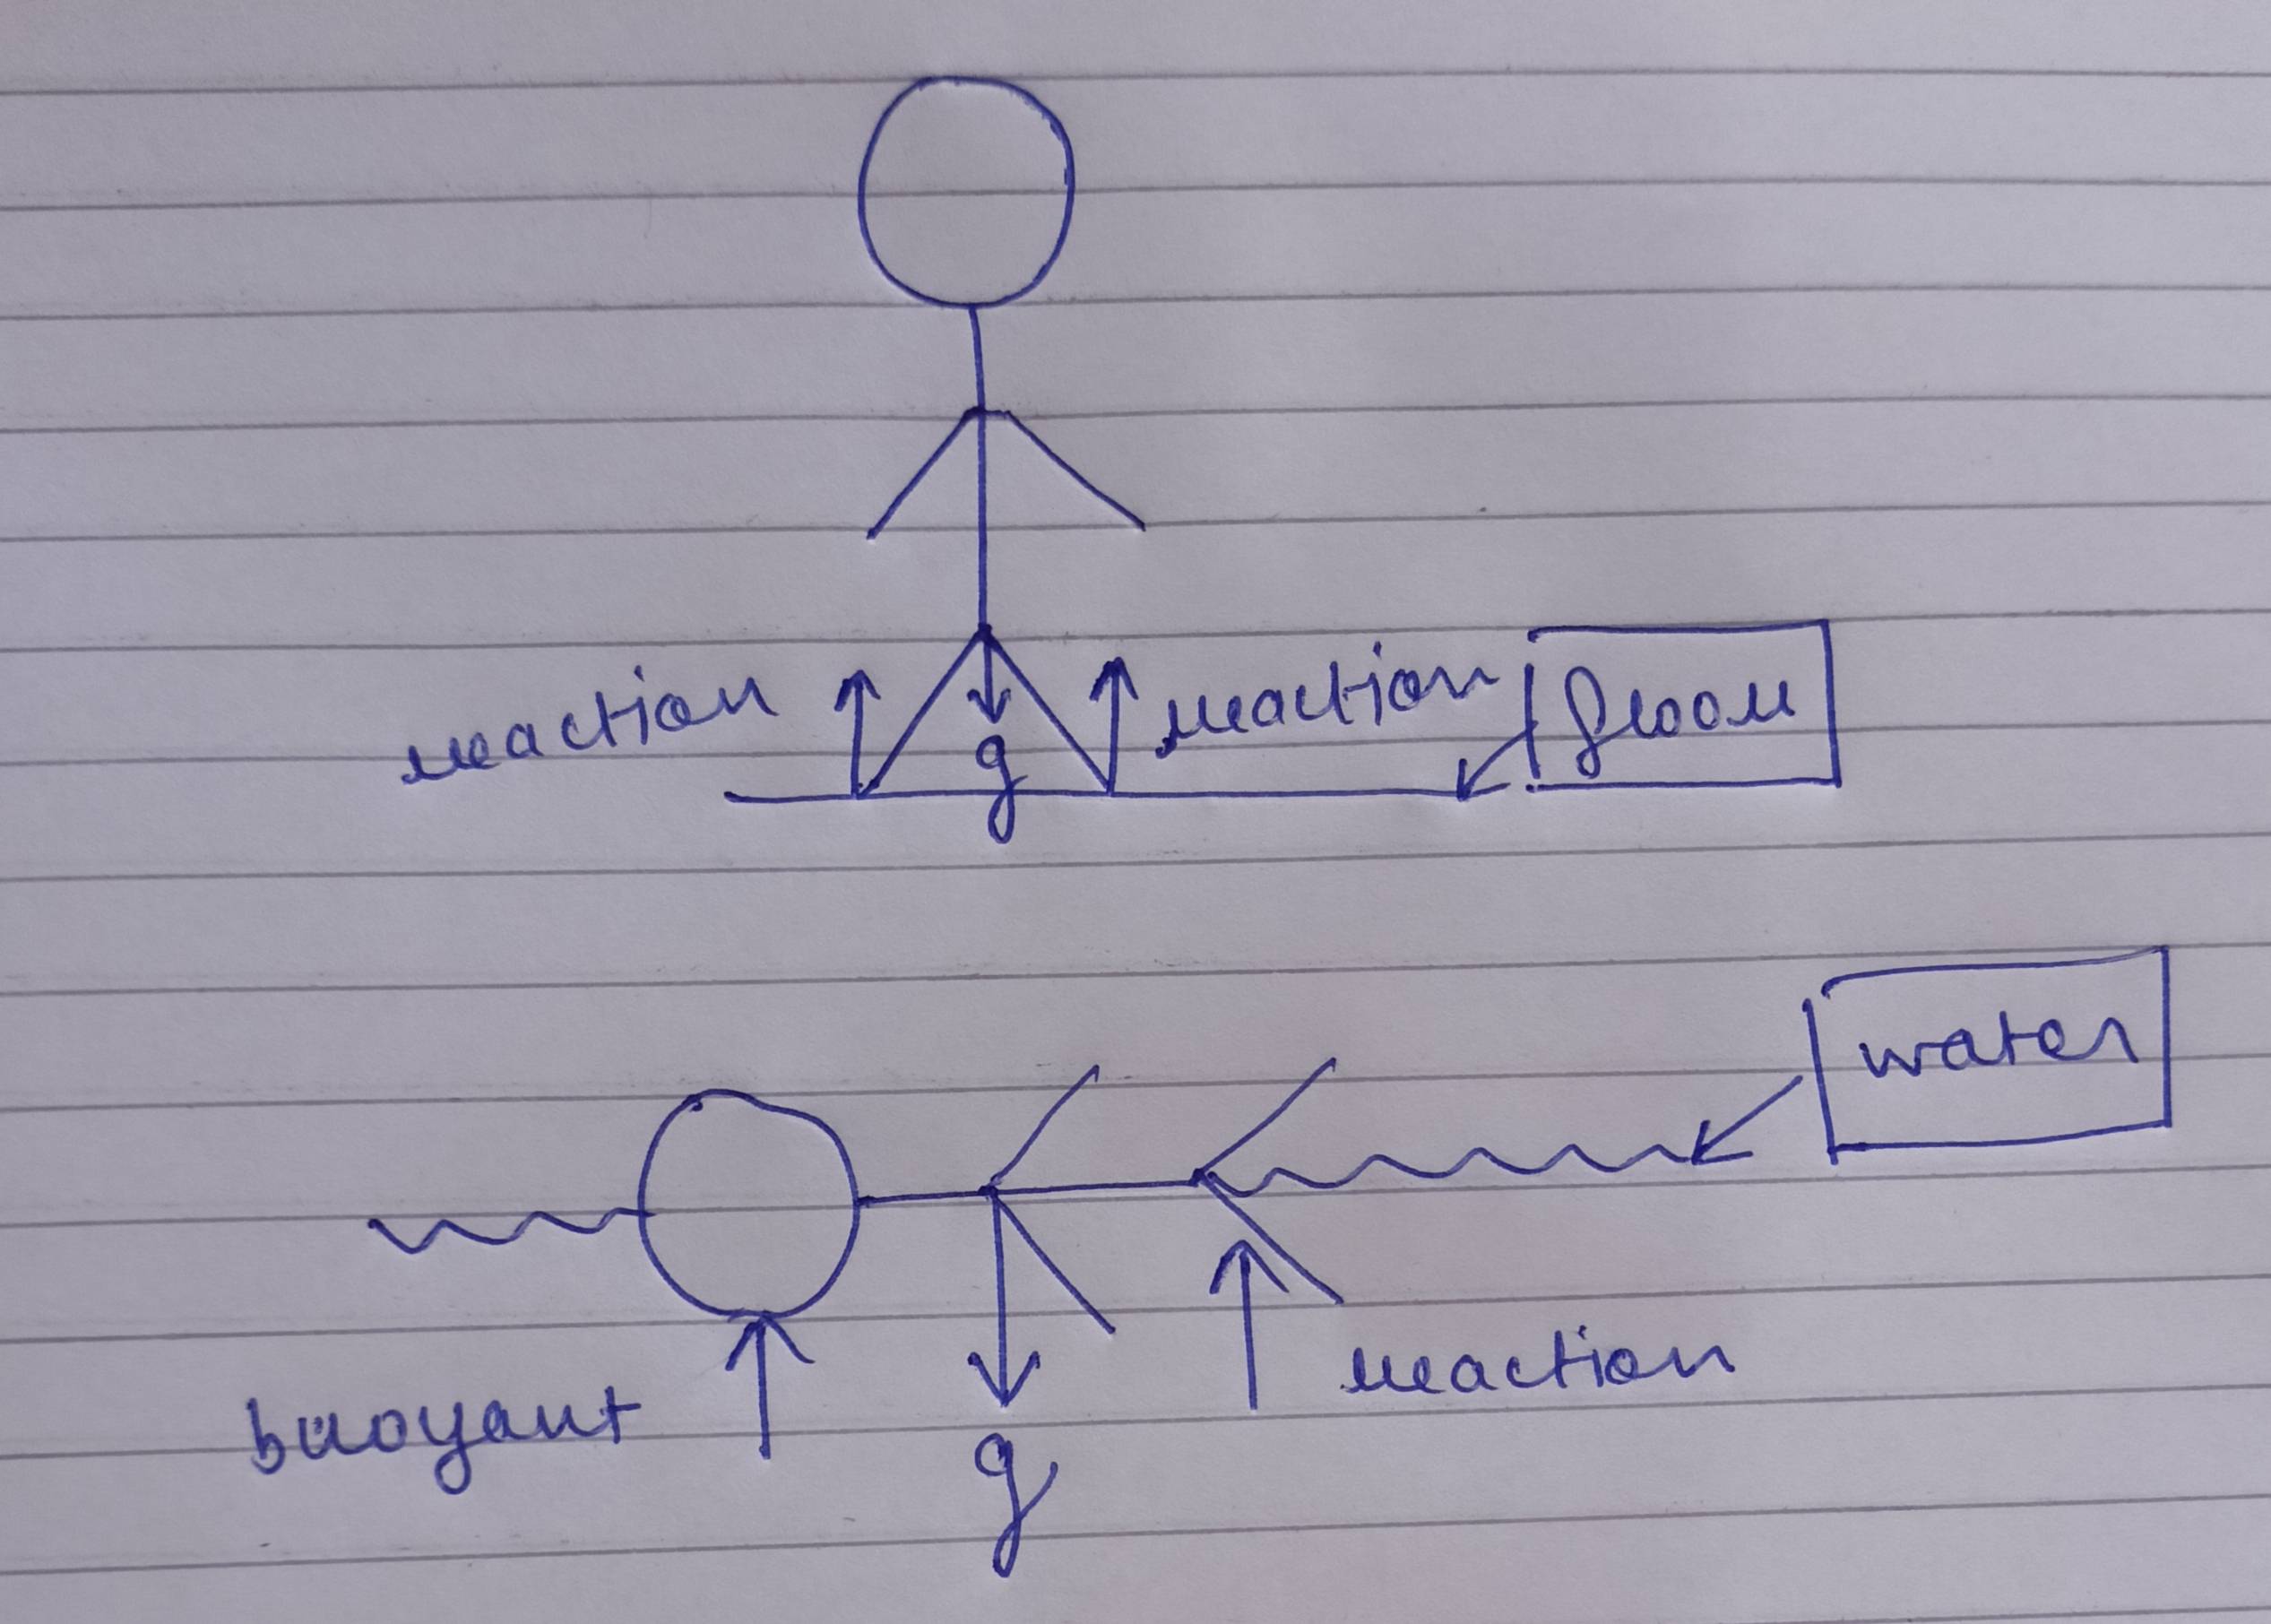 reaction
reaction
floor
g
water
reaction
buoyant
g